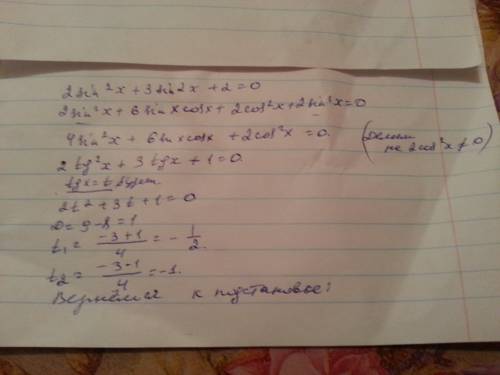 2sin²x + 3sin2x + 2 = 0
2sin²x + 6sinxcosx + 2cos²x + 2sin²x = 0
4sin²x + 6sinxcosx + 2cos²x = 0. (делим на 2cos²x ≠ 0)
2tg²x + 3tgx + 1 = 0.
tgx = t будет.
2t² + 3t + 1 = 0
D = 9 - 8 = 1
t₁ = (-3+1)/4 = -1/2.
t₂ = (-3-1)/4 = -1.
Вернёмся к подстановке: